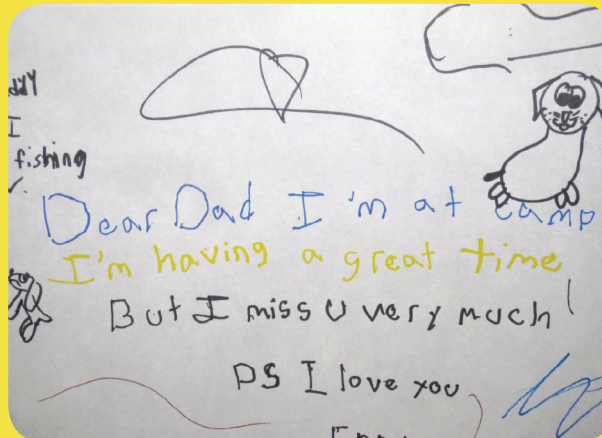 I
fishing
Dear Dad I'm at camp
I'm having a great time
But I miss U very much!
PS I love you